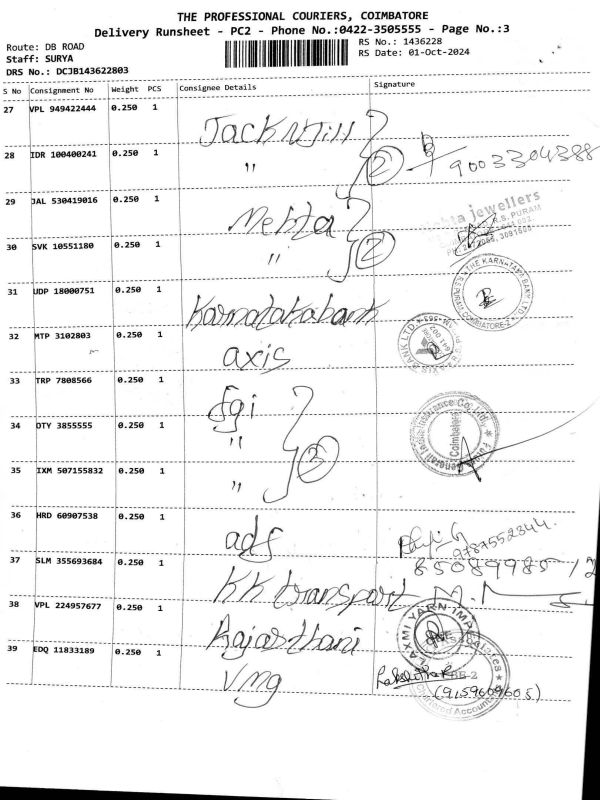 THE PROFESSIONAL COURIERS, COIMBATORE
Delivery Runsheet - PC2 - Phone No.:0422-3505555 - Page No.:3
Route: DB ROAD
RS No.: 1436228
Staff: SURYA
RS Date: 01-Oct-2024
DRS No.: DCJB143622803
S No Consignment No Weight PCS Consignee Details Signature
27 VPL 949422444 0.250 1 Jack N Jill
28 IDR 100400241 0.250 1 " 2 9003304388
29 JAL 530419016 0.250 1 Mehta jewellers
R.S. PURAM
30 SVK 10551180 0.250 1 " 2
31 UDP 18000751 0.250 1 Karnatakabank THE KARNATAKA BANK LTD
COIMBATORE-2
32 MTP 3102803 0.250 1 axis BANK LTD
33 TRP 7808566 0.250 1 fgi
34 OTY 3855555 0.250 1 " Coimbatore
35 IXM 507155832 0.250 1 "
36 HRD 60907538 0.250 1 adf 9787552844
37 SLM 355693684 0.250 1 KK transport 8508998512
38 VPL 224957677 0.250 1 Rajasthani LAXMI YARN
39 EDQ 11833189 0.250 1 Vmg
(9159609605)